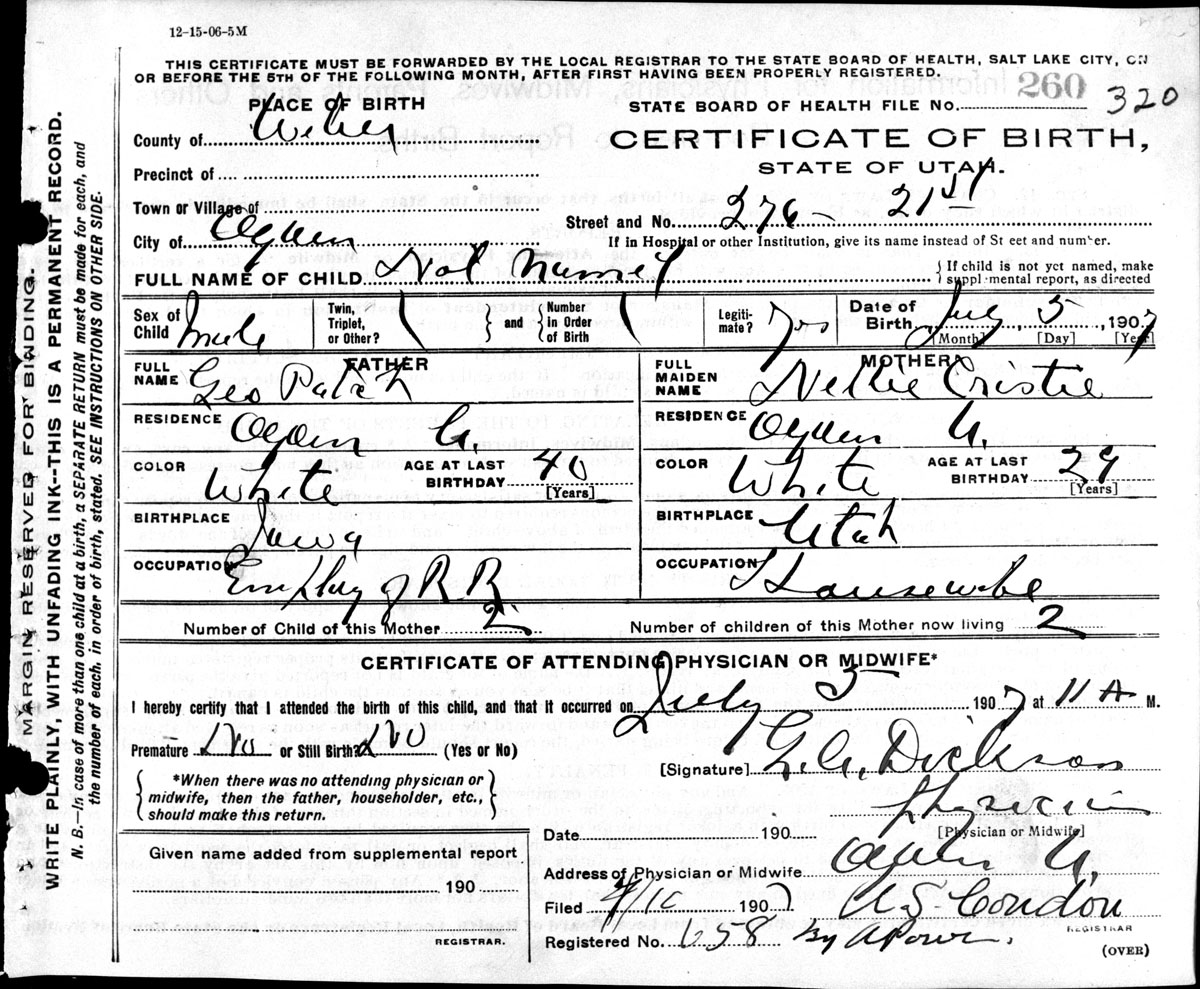 12-15-06-5M
THIS CERTIFICATE MUST BE FORWARDED BY THE LOCAL REGISTRAR TO THE STATE BOARD OF HEALTH, SALT LAKE CITY, ON
OR BEFORE THE 5TH OF THE FOLLOWING MONTH, AFTER FIRST HAVING BEEN PROPERLY REGISTERED.
PLACE OF BIRTH
STATE BOARD OF HEALTH FILE No. 260 320
County of Weber
CERTIFICATE OF BIRTH,
STATE OF UTAH.
Precinct of
Town or Village of
Street and No. 276 21st
City of Ogden
If in Hospital or other Institution, give its name instead of St eet and number.
FULL NAME OF CHILD Not Named
{If child is not yet named, make
supplemental report, as directed
Sex of Child Male
Twin, Triplet, or Other?
} and {
Number in Order of Birth
Legitimate? Yes
Date of Birth July 5, 1907
[Month] [Day] [Year]
FATHER
FULL NAME Geo
RESIDENCE Ogden U.
COLOR White
AGE AT LAST BIRTHDAY 40
[Years]
BIRTHPLACE Iowa
OCCUPATION Employ of R.R
MOTHER
FULL MAIDEN NAME Nellie Cristie
RESIDENCE Ogden U.
COLOR White
AGE AT LAST BIRTHDAY 29
[Years]
BIRTHPLACE Utah
OCCUPATION Housewife
Number of Child of this Mother 2
Number of children of this Mother now living 2
CERTIFICATE OF ATTENDING PHYSICIAN OR MIDWIFE*
I hereby certify that I attended the birth of this child, and that it occurred on July 5 1907 at 11 A M.
Premature No or Still Birth? No (Yes or No)
[Signature] G.A. Dickson
{*When there was no attending physician or
midwife, then the father, householder, etc.,
should make this return.}
Physician
[Physician or Midwife]
Date 190
Given name added from supplemental report
190
REGISTRAR.
Address of Physician or Midwife Ogden U.
Filed 1907 Condon
REGISTRAR
Registered No. 658 By
(OVER)
MARGIN RESERVED FOR BINDING.
WRITE PLAINLY, WITH UNFADING INK--THIS IS A PERMANENT RECORD.
N. B.—In case of more than one child at a birth, a SEPARATE RETURN must be made for each, and
the number of each, in order of birth, stated. SEE INSTRUCTIONS ON OTHER SIDE.